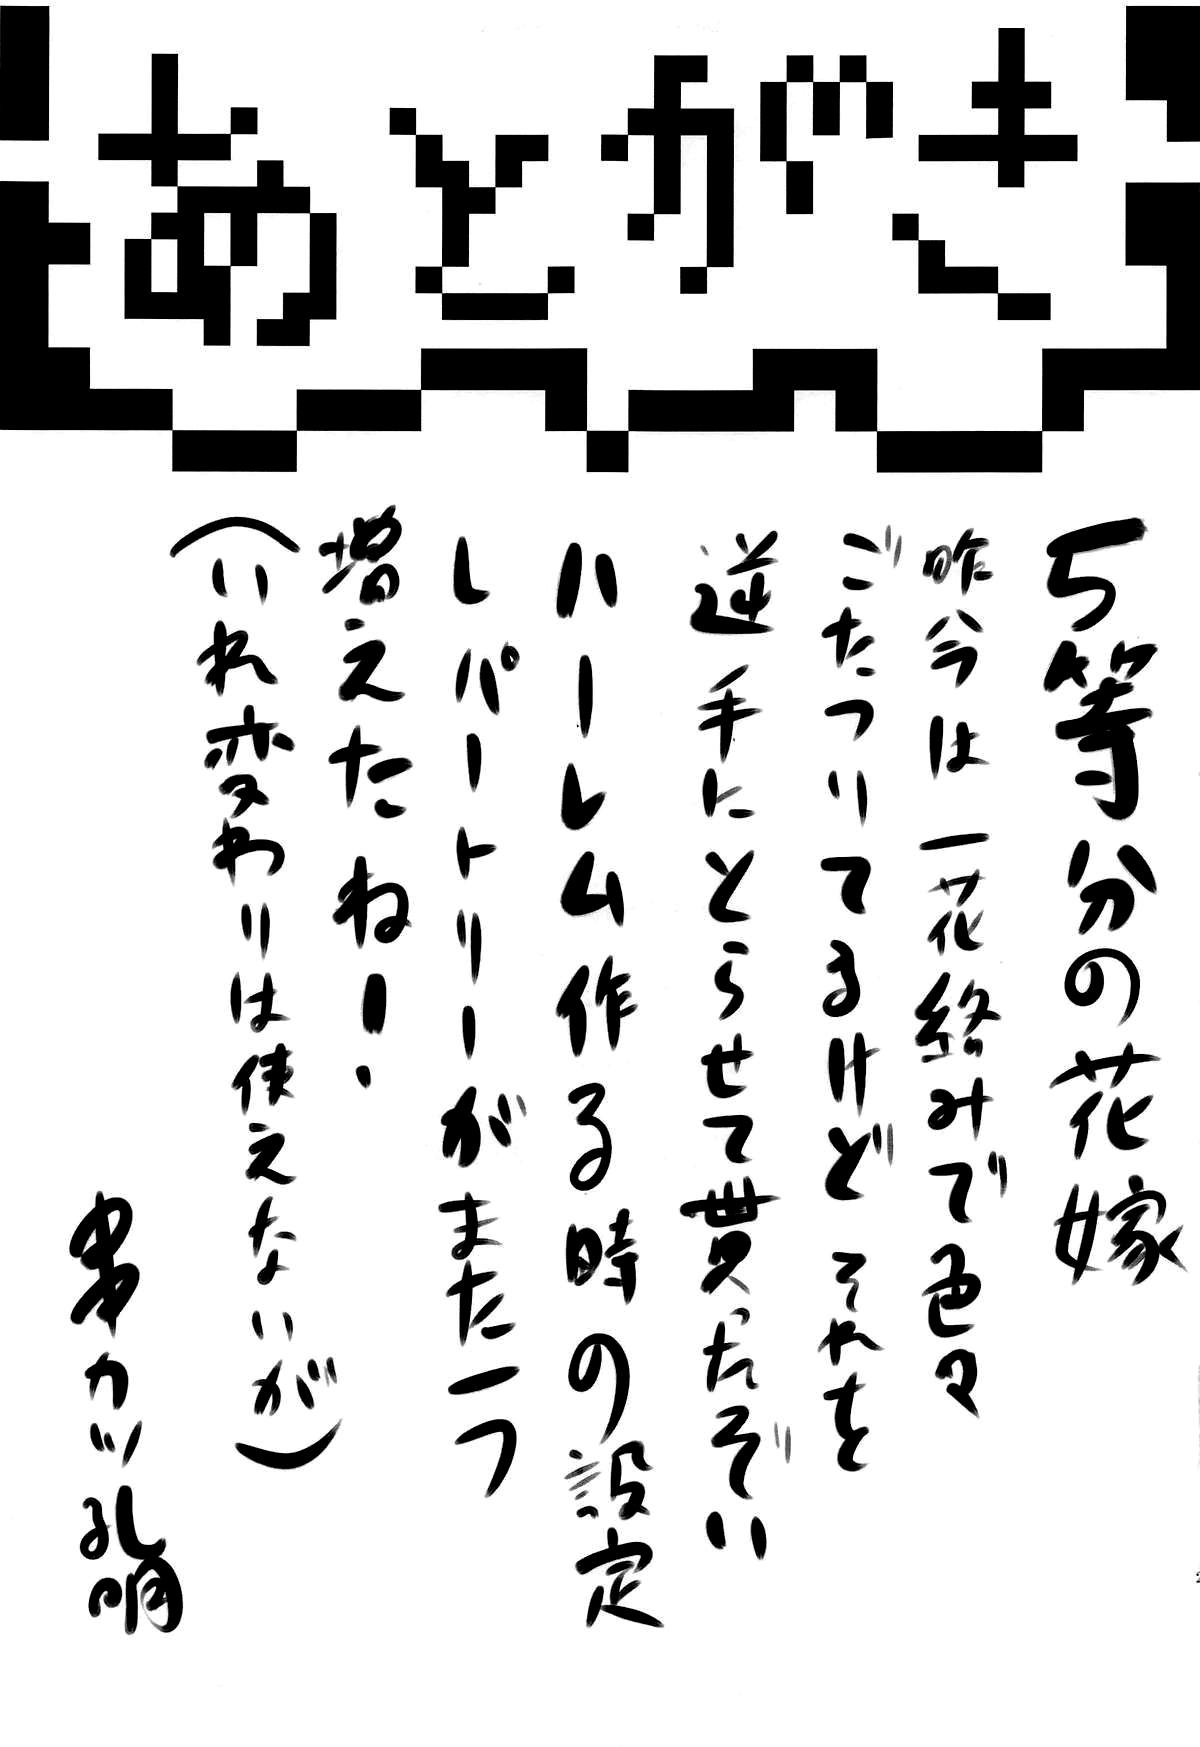 あとがき
5等分の花嫁
昨今は一花絡みで色々
ごたつりてるけど それを
逆手にとらせて貰ったぞい
ハーレム作る時の設定
レパートリーがまた一つ
増えたね!
(いれ変わりは使えないが)
串カツ孔明